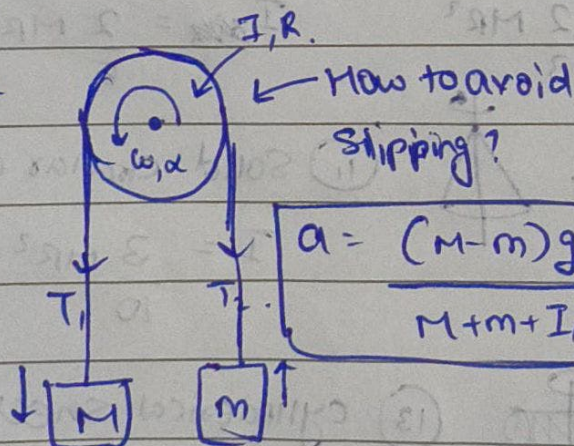 I, R.
How to avoid
slipping?
ω, α
a = (M-m)g
M+m+I
T₁
T₂.
M
m